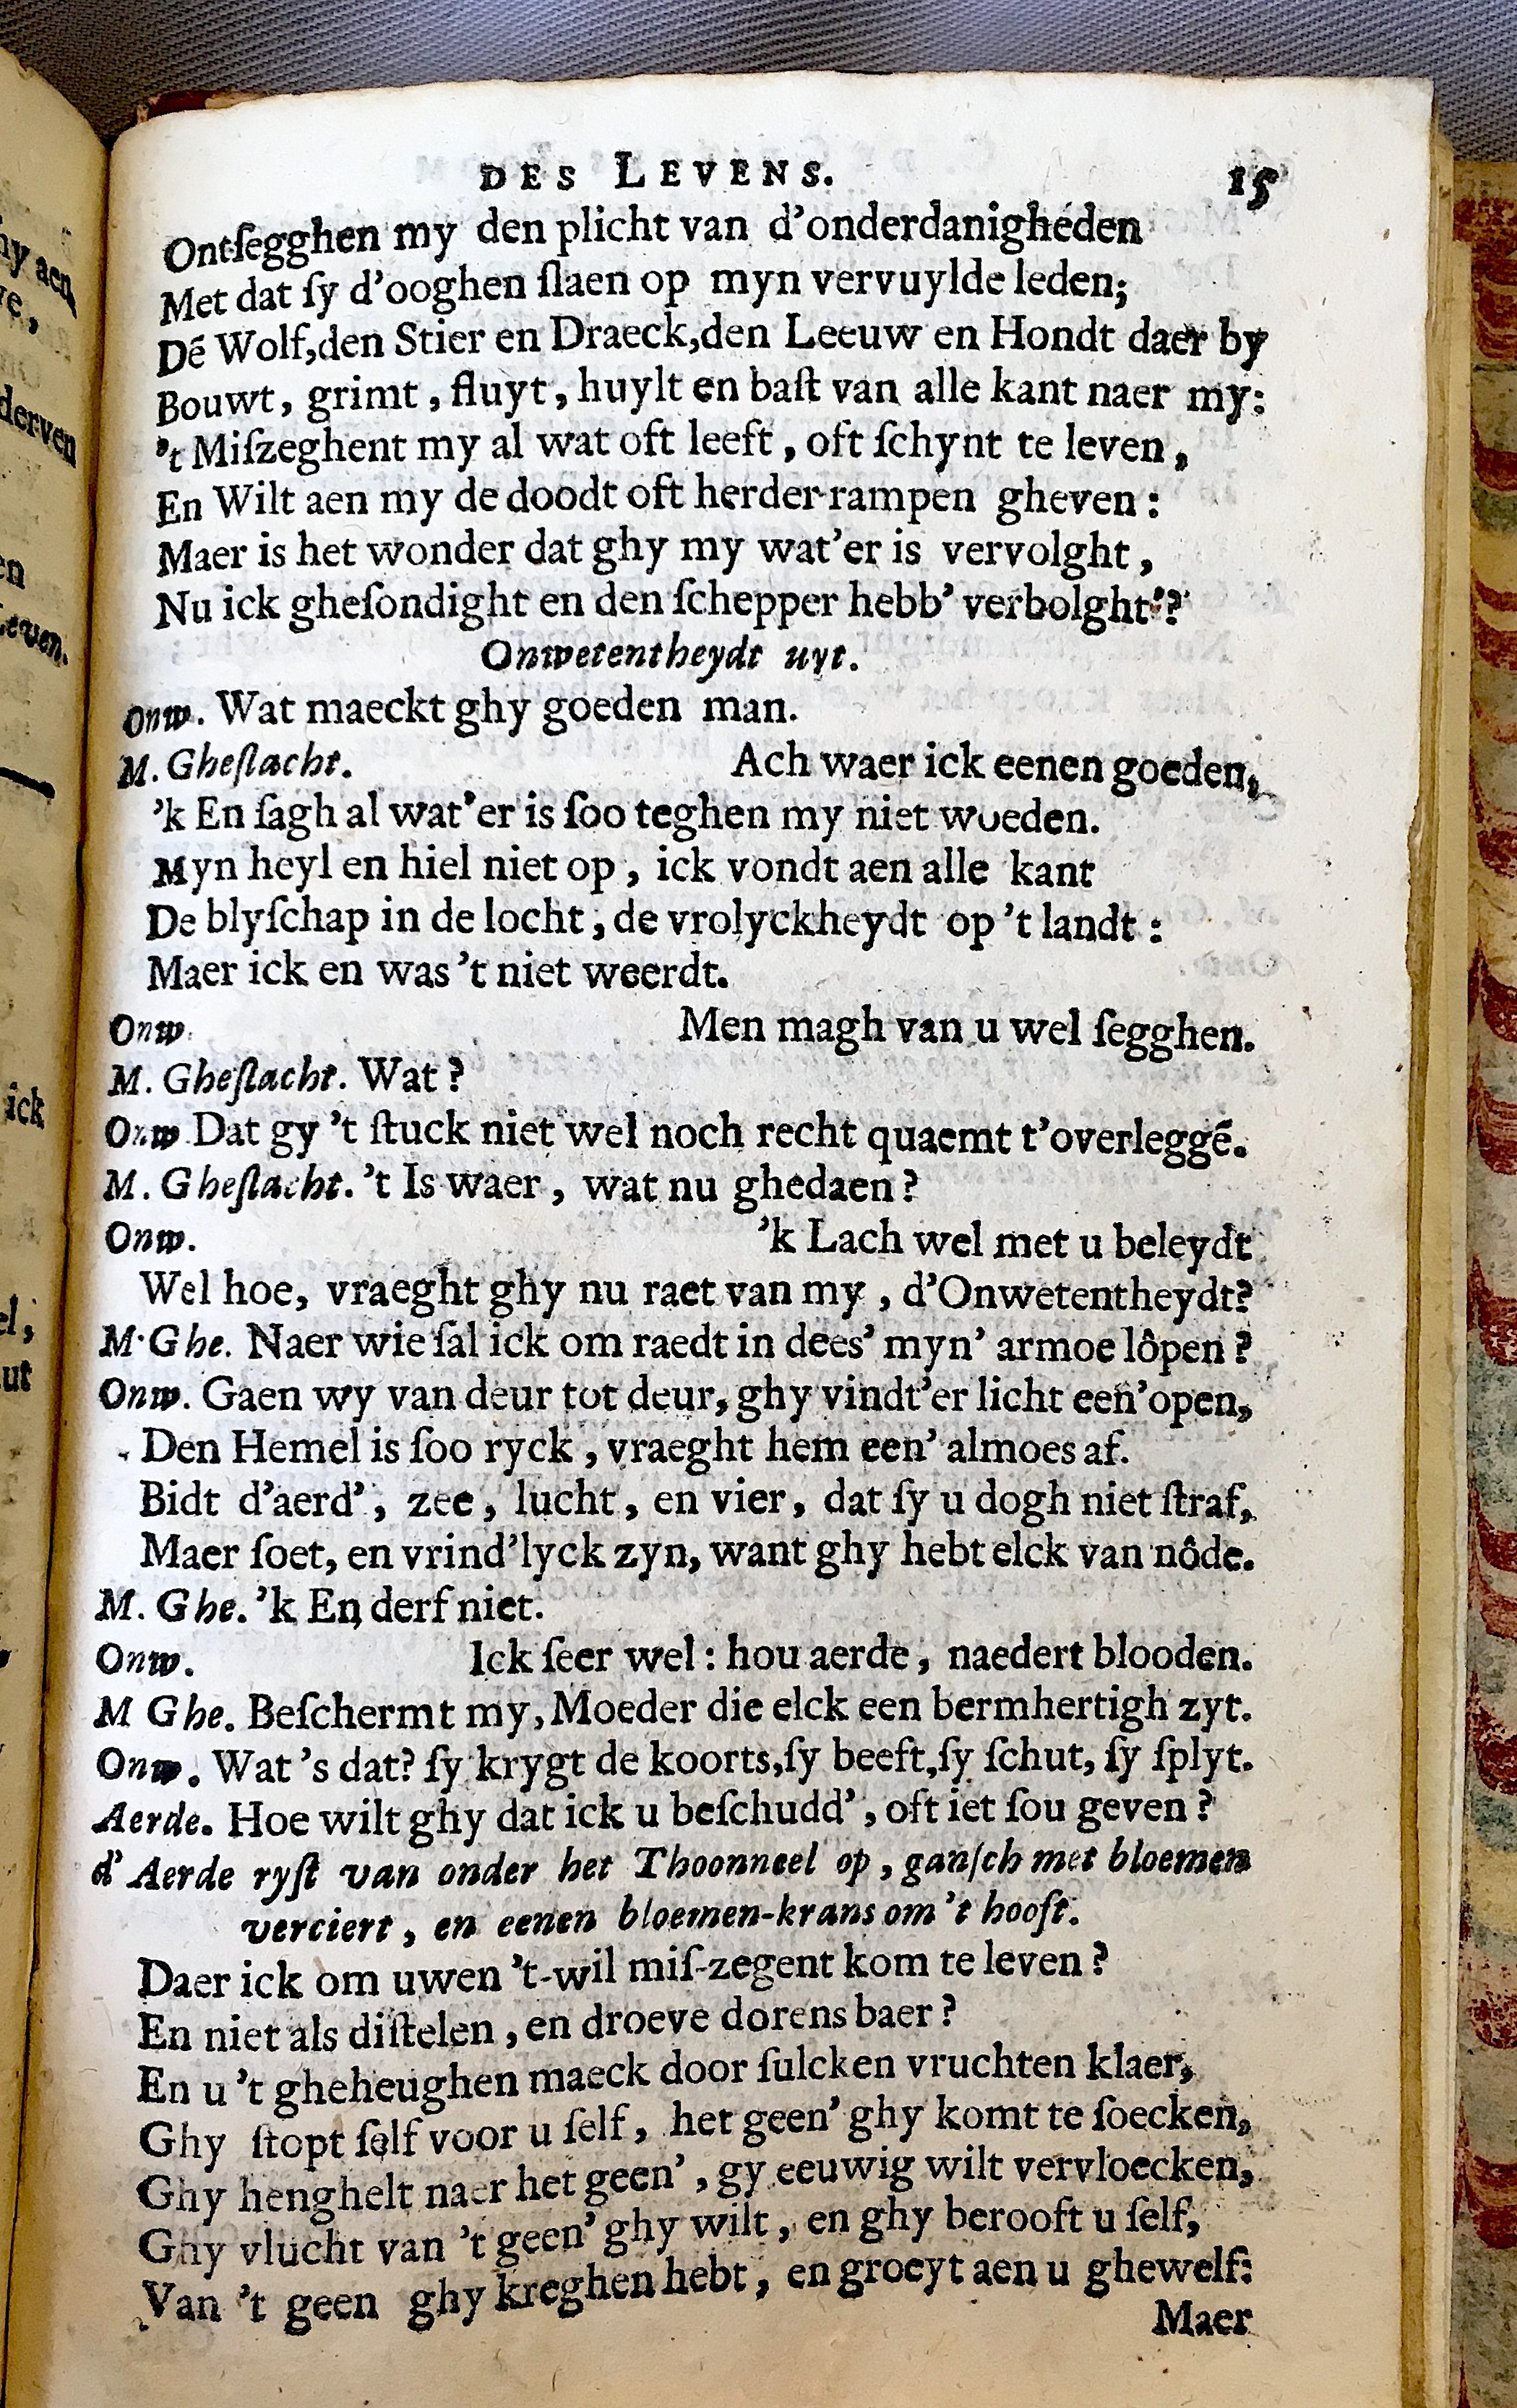 DES LEVENS. 15
Ontſegghen my den plicht van d'onderdanighéden
Met dat ſy d'ooghen ſlaen op myn vervuylde leden;
Dē Wolf,den Stier en Draeck,den Leeuw en Hondt daer by
Bouwt, grimt, fluyt, huylt en baſt van alle kant naer my:
't Miſzeghent my al wat oft leeft, oft ſchynt te leven,
En Wilt aen my de doodt oft herder-rampen gheven:
Maer is het wonder dat ghy my wat'er is vervolght,
Nu ick gheſondight en den ſchepper hebb' verbolght'?
Onwetentheydt uyt.
Onw. Wat maeckt ghy goeden man.
M. Gheſlacht. Ach waer ick eenen goeden,
'k En ſagh al wat'er is ſoo teghen my niet woeden.
Myn heyl en hiel niet op, ick vondt aen alle kant
De blyſchap in de locht, de vrolyckheydt op 't landt:
Maer ick en was 't niet weerdt.
Onw. Men magh van u wel ſegghen.
M. Gheſlacht. Wat?
Onw Dat gy 't ſtuck niet wel noch recht quaemt t'overleggē.
M. Gheſlacht. 't Is waer, wat nu ghedaen?
Onw. 'k Lach wel met u beleydt
Wel hoe, vraeght ghy nu raet van my, d'Onwetentheydt?
M. Ghe. Naer wie ſal ick om raedt in dees' myn' armoe lôpen?
Onw. Gaen wy van deur tot deur, ghy vindt'er licht een'open,
Den Hemel is ſoo ryck, vraeght hem een' almoes af.
Bidt d'aerd', zee, lucht, en vier, dat ſy u dogh niet ſtraf,
Maer ſoet, en vrind'lyck zyn, want ghy hebt elck van nôde.
M. Ghe. 'k En derf niet.
Onw. Ick ſeer wel: hou aerde, naedert blooden.
M Ghe. Beſchermt my, Moeder die elck een bermhertigh zyt.
Onw. Wat 's dat? ſy krygt de koorts,ſy beeft,ſy ſchut, ſy ſplyt.
Aerde. Hoe wilt ghy dat ick u beſchudd', oft iet ſou geven?
d' Aerde ryſt van onder het Thoonneel op, ganſch met bloemen
verciert, en eenen bloemen-krans om 't hooft.
Daer ick om uwen 't-wil miſ-zegent kom te leven?
En niet als diſtelen, en droeve dorens baer?
En u 't gheheughen maeck door ſulcken vruchten klaer,
Ghy ſtopt ſelf voor u ſelf, het geen' ghy komt te ſoecken,
Ghy henghelt naer het geen', gy eeuwig wilt vervloecken,
Ghy vlucht van 't geen' ghy wilt, en ghy berooft u ſelf,
Van 't geen ghy kreghen hebt, en groeyt aen u ghewelf:
Maer